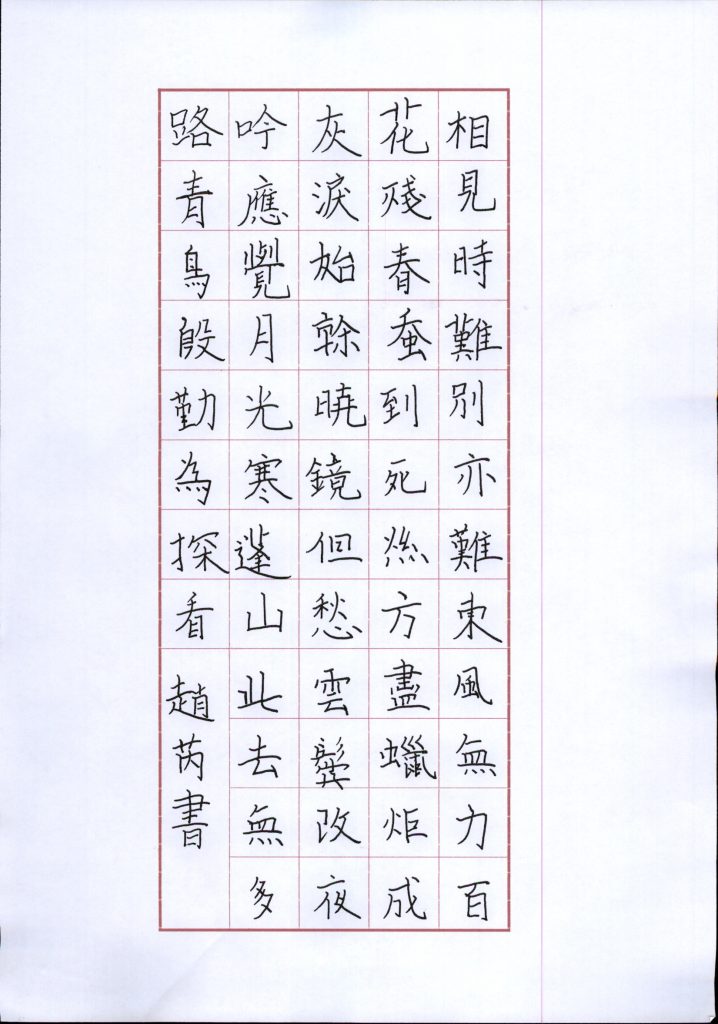 相見時難別亦難東風無力百
花殘春蚕到死絲方盡蠟炬成
灰淚始乾曉鏡但愁雲鬢改夜
吟應覺月光寒蓬山此去無多
路青鳥殷勤為探看
趙芮書